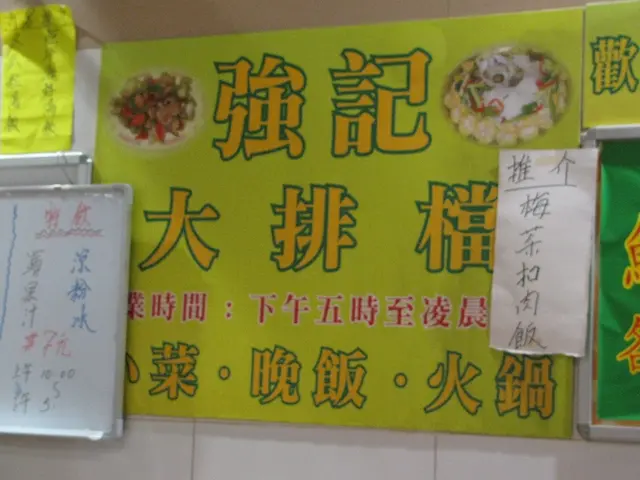 強記
大排檔
業時間：下午五時至凌晨
小菜·晚飯·火鍋
推介
梅菜扣肉飯
特飲
涼粉冰
7元
歡